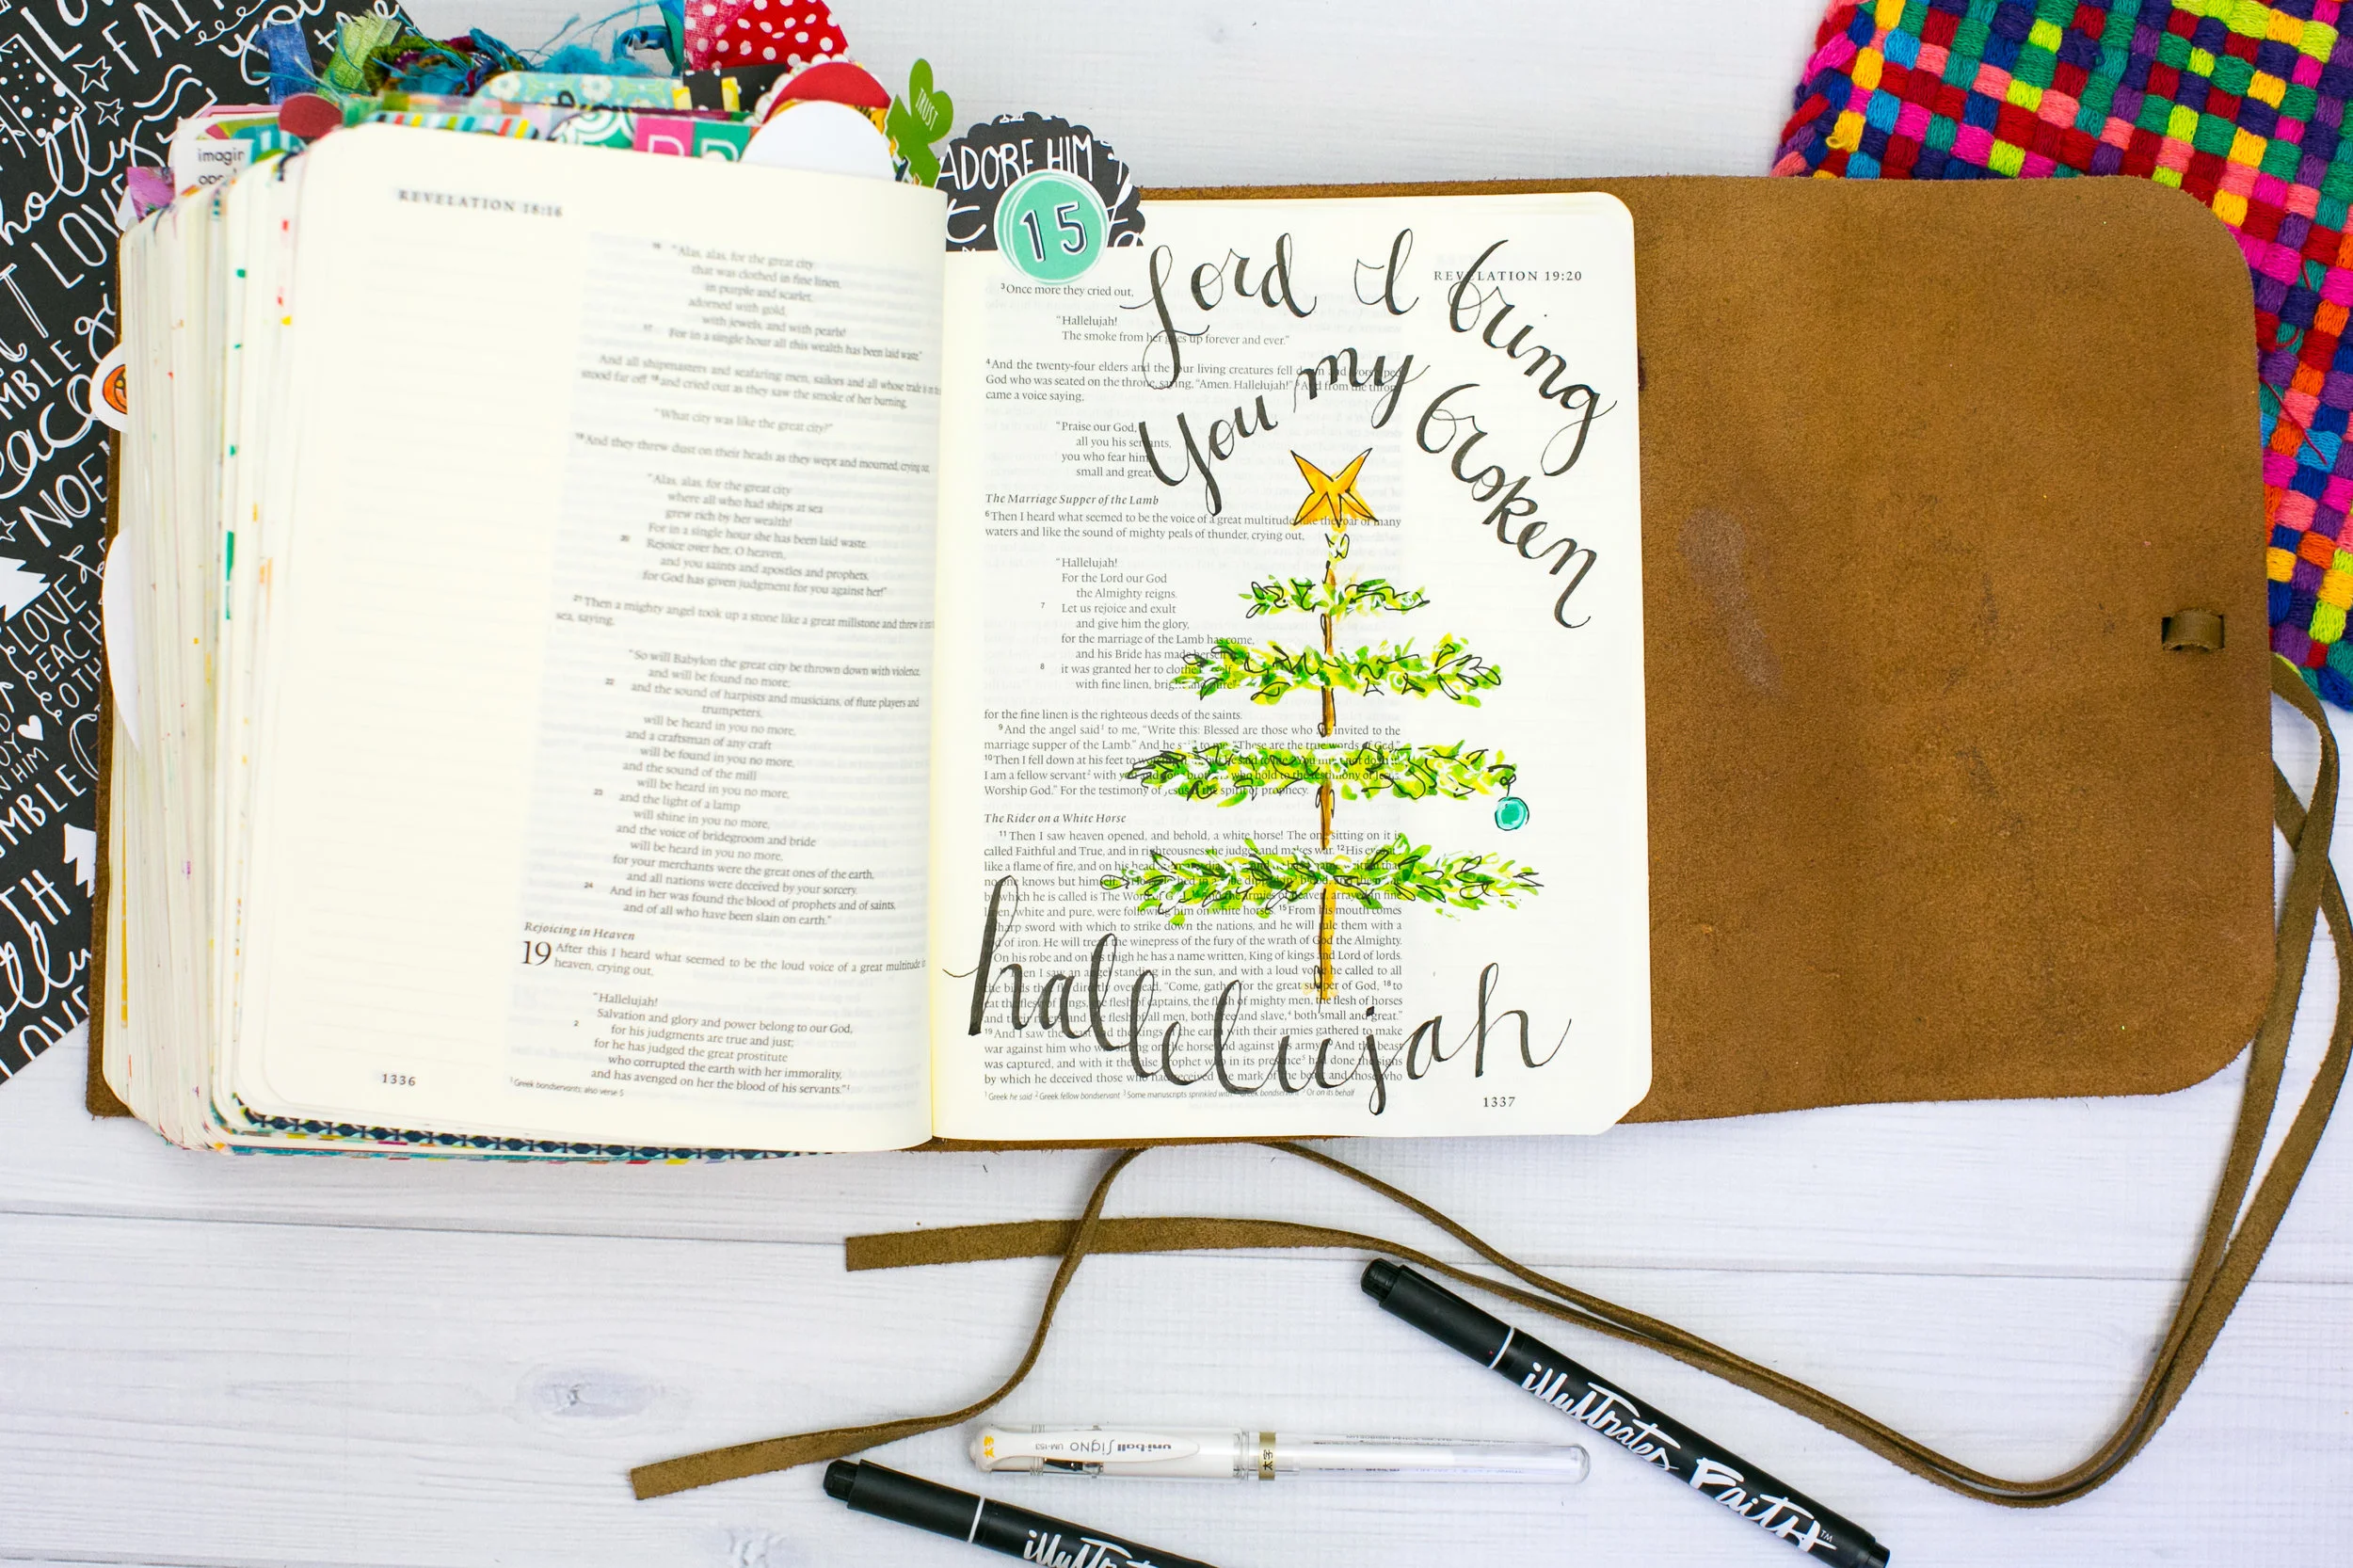 imagin
TRUST
ADORE HIM
15
REVELATION 18:16
16 "Alas, alas, for the great city
that was clothed in fine linen,
in purple and scarlet,
adorned with gold,
with jewels, and with pearls!
17 For in a single hour all this wealth has been laid waste."
And all shipmasters and seafaring men, sailors and all whose trade is
stood far off 18 and cried out as they saw the smoke of her burning,
"What city was like the great city?"
19 And they threw dust on their heads as they wept and mourned, crying out,
"Alas, alas, for the great city
where all who had ships at sea
grew rich by her wealth!
For in a single hour she has been laid waste.
20 Rejoice over her, O heaven,
and you saints and apostles and prophets,
for God has given judgment for you against her!"
21 Then a mighty angel took up a stone like a great millstone and threw it
sea, saying,
"So will Babylon the great city be thrown down with violence,
and will be found no more;
22 and the sound of harpists and musicians, of flute players and
trumpeters,
will be heard in you no more,
and a craftsman of any craft
will be found in you no more,
and the sound of the mill
will be heard in you no more,
23 and the light of a lamp
will shine in you no more,
and the voice of bridegroom and bride
will be heard in you no more,
for your merchants were the great ones of the earth,
and all nations were deceived by your sorcery.
24 And in her was found the blood of prophets and of saints,
and of all who have been slain on earth."
Rejoicing in Heaven
19 After this I heard what seemed to be the loud voice of a great multitude
heaven, crying out,
"Hallelujah!
Salvation and glory and power belong to our God,
2 for his judgments are true and just;
for he has judged the great prostitute
who corrupted the earth with her immorality,
and has avenged on her the blood of his servants."1
1 Greek bondservants; also verse 5
1336
Lord I bring
You my broken
hallelujah
REVELATION 19:20
3 Once more they cried out,
"Hallelujah!
The smoke from her goes up forever and ever."
4 And the twenty-four elders and the four living creatures fell down and worshiped
God who was seated on the throne, saying, "Amen. Hallelujah!" 5 And from the throne
came a voice saying,
"Praise our God,
all you his servants,
you who fear him,
small and great."
The Marriage Supper of the Lamb
6 Then I heard what seemed to be the voice of a great multitude, like the roar of many
waters and like the sound of mighty peals of thunder, crying out,
"Hallelujah!
For the Lord our God
the Almighty reigns.
7 Let us rejoice and exult
and give him the glory,
for the marriage of the Lamb has come,
and his Bride has made herself
8 it was granted her to clothe herself
with fine linen, bright and pure"—
for the fine linen is the righteous deeds of the saints.
9 And the angel said1 to me, "Write this: Blessed are those who are invited to the
marriage supper of the Lamb." And he said to me, "These are the true words of God."
10 Then I fell down at his feet to worship him, but he said to me, "You must not do that!
I am a fellow servant2 with you and your brothers who hold to the testimony of Jesus.
Worship God." For the testimony of Jesus is the spirit of prophecy.
The Rider on a White Horse
11 Then I saw heaven opened, and behold, a white horse! The one sitting on it is
called Faithful and True, and in righteousness he judges and makes war. 12 His eyes are
like a flame of fire, and on his head are many diadems, and he has a name written that
no one knows but himself. 13 He is clothed in a robe dipped in3 blood, and the name
by which he is called is The Word of God. 14 And the armies of heaven, arrayed in fine
linen, white and pure, were following him on white horses. 15 From his mouth comes
a sharp sword with which to strike down the nations, and he will rule them with a
rod of iron. He will tread the winepress of the fury of the wrath of God the Almighty.
16 On his robe and on his thigh he has a name written, King of kings and Lord of lords.
17 Then I saw an angel standing in the sun, and with a loud voice he called to all
the birds that fly directly overhead, "Come, gather for the great supper of God, 18 to
eat the flesh of kings, the flesh of captains, the flesh of mighty men, the flesh of horses
and their riders, and the flesh of all men, both free and slave,4 both small and great."
19 And I saw the beast and the kings of the earth with their armies gathered to make
war against him who was sitting on the horse and against his army. 20 And the beast
was captured, and with it the false prophet who in its presence5 had done the signs
by which he deceived those who had received the mark of the beast and those who
1 Greek he said 2 Greek fellow bondservant 3 Some manuscripts sprinkled with 4 Greek bondservant 5 Or on its behalf
1337
uni-ball Signo UM-153
太字
illustrated Faith™